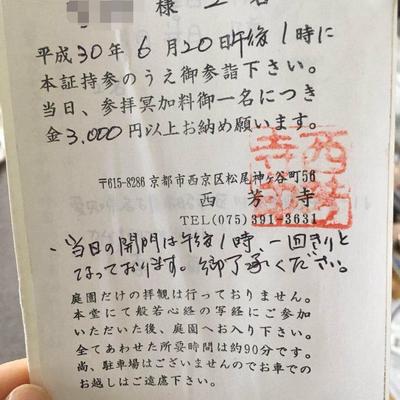 様
平成30年6月20日午後1時に
本証持参のうえ御参詣下さい。
当日、参拝冥加料御一名につき
金3,000円以上お納め願います。
〒615-8286 京都市西京区松尾神ヶ谷町56
西芳寺
TEL(075)391-3631
・当日の開門は午後1時、一回きりと
なっております。御了承ください。
庭園だけの拝観は行っておりません。
本堂にて般若心経の写経にご参加
いただいた後、庭園へお入り下さい。
全てあわせた所要時間は約90分です。
尚、駐車場はございませんのでお車での
お越しはご遠慮下さい。
西芳寺